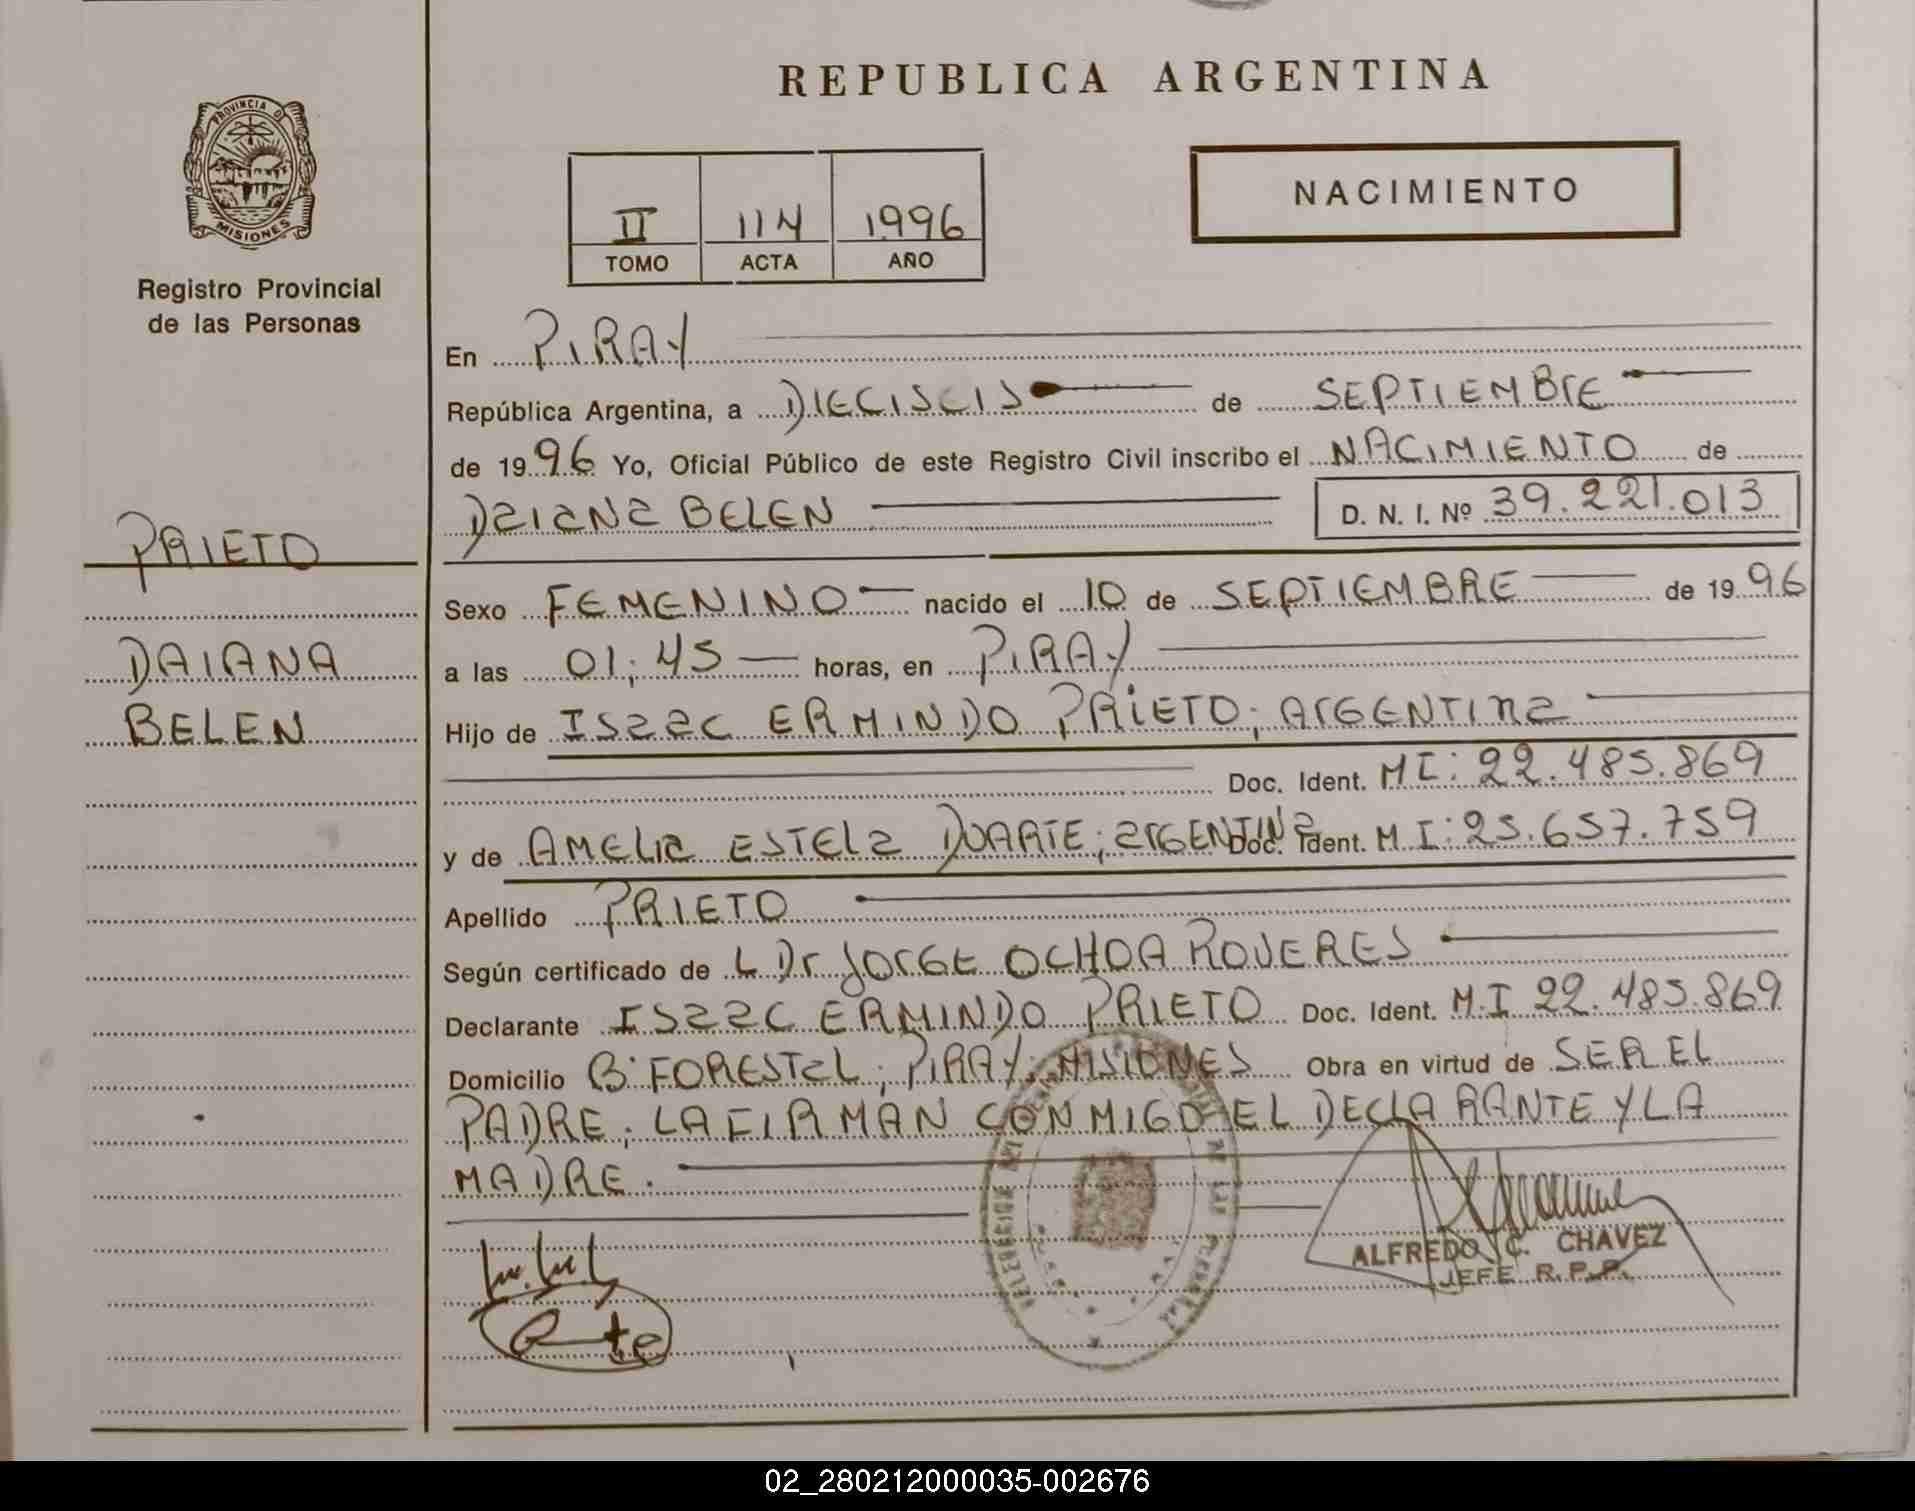 REPUBLICA ARGENTINA
PROVINCIA D
MISIONES
Registro Provincial
de las Personas
NACIMIENTO
II 114 1996
TOMO ACTA AÑO
En PIRAY
República Argentina, a DIECISEIS de SEPTIEMBRE
de 1996 Yo, Oficial Público de este Registro Civil inscribo el NACIMIENTO de
DAIANA BELEN D. N. I. Nº 39.221.013
PRIETO
DAIANA
BELEN
Sexo FEMENINO nacido el 10 de SEPTIEMBRE de 1996
a las 01:45 horas, en PIRAY
Hijo de ISAAC ERMINDO PRIETO; ARGENTINA
Doc. Ident. MI: 22.485.869
y de AMELIA ESTELA DUARTE; ARGENTINA Doc. Ident. M I: 25.657.759
Apellido PRIETO
Según certificado de L Dr JORGE OCHOA ROVERES
Declarante ISAAC ERMINDO PRIETO Doc. Ident. M.I 22.485.869
Domicilio Bº FORESTAL; PIRAY; MISIONES Obra en virtud de SER EL
PADRE; LA FIRMAN CONMIGO EL DECLARANTE Y LA
MADRE.
ALFREDO C. CHAVEZ
JEFE R.P.P.
02_280212000035-002676